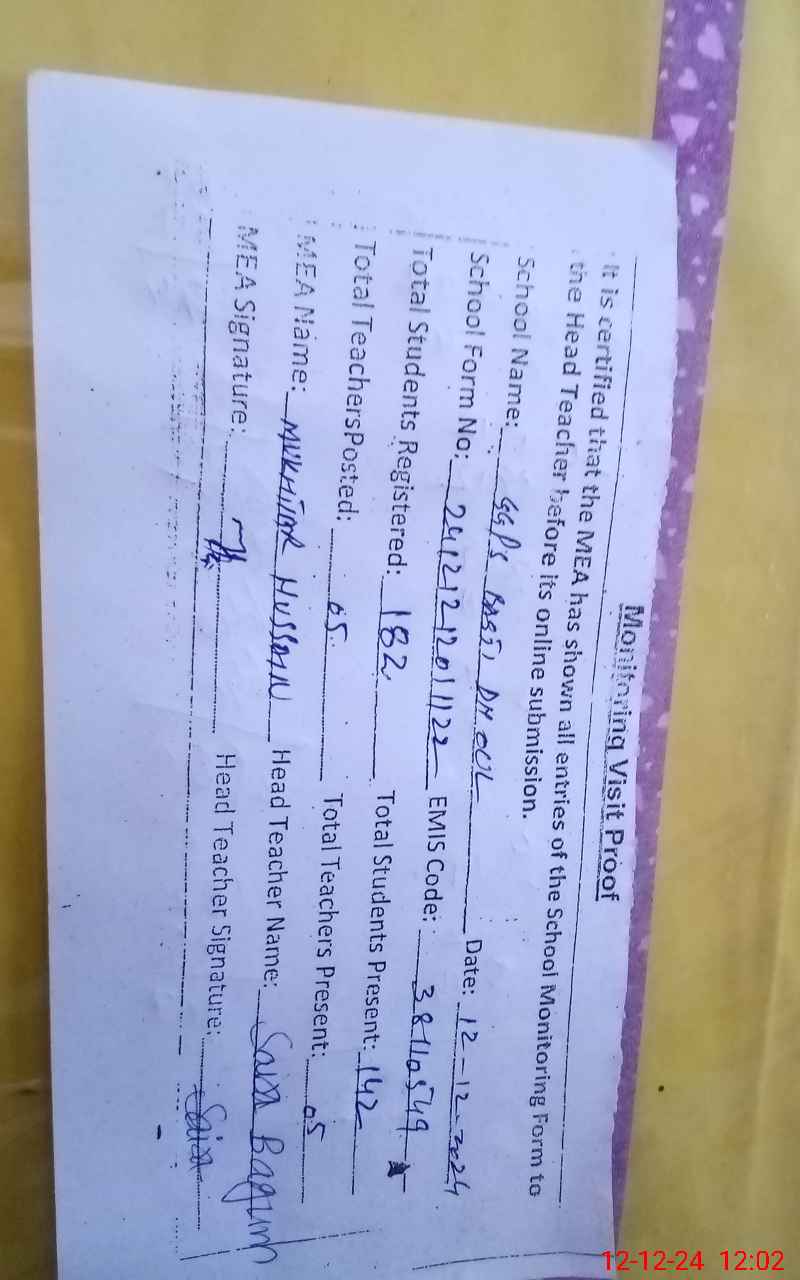 Monitoring Visit Proof
It is certified that the MEA has shown all entries of the School Monitoring Form to
the Head Teacher before its online submission.
School Name: GGPS BASTI DHOUL Date: 12-12-2024
School Form No: 24121212011122 EMIS Code: 38110549
Total Students Registered: 182 Total Students Present: 142
Total TeachersPosted: 05 Total Teachers Present: 05
MEA Name: MUKHTIAR HUSSAIN Head Teacher Name: Saira Bagum
MEA Signature: Head Teacher Signature: Saira
12-12-24 12:02